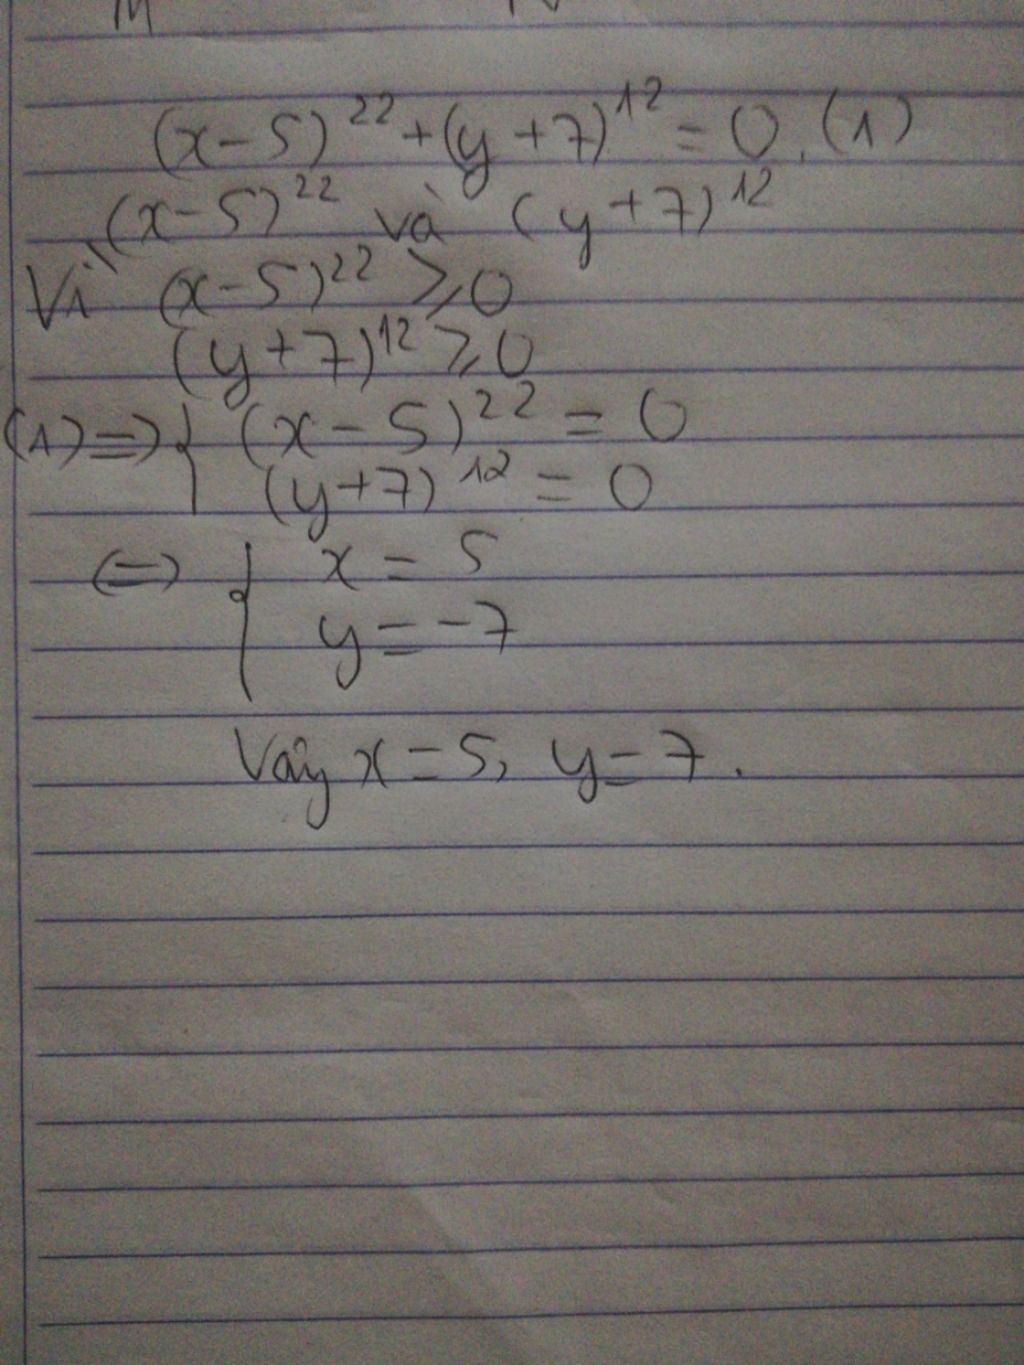 (x-5)²² + (y+7)¹² = 0. (1)
(x-5)²² và (y+7)¹²
Vì (x-5)²² ⩾ 0
(y+7)¹² ⩾ 0
(1) => { (x-5)²² = 0
(y+7)¹² = 0
<=> { x = 5
y = -7
Vây x = 5, y = 7.